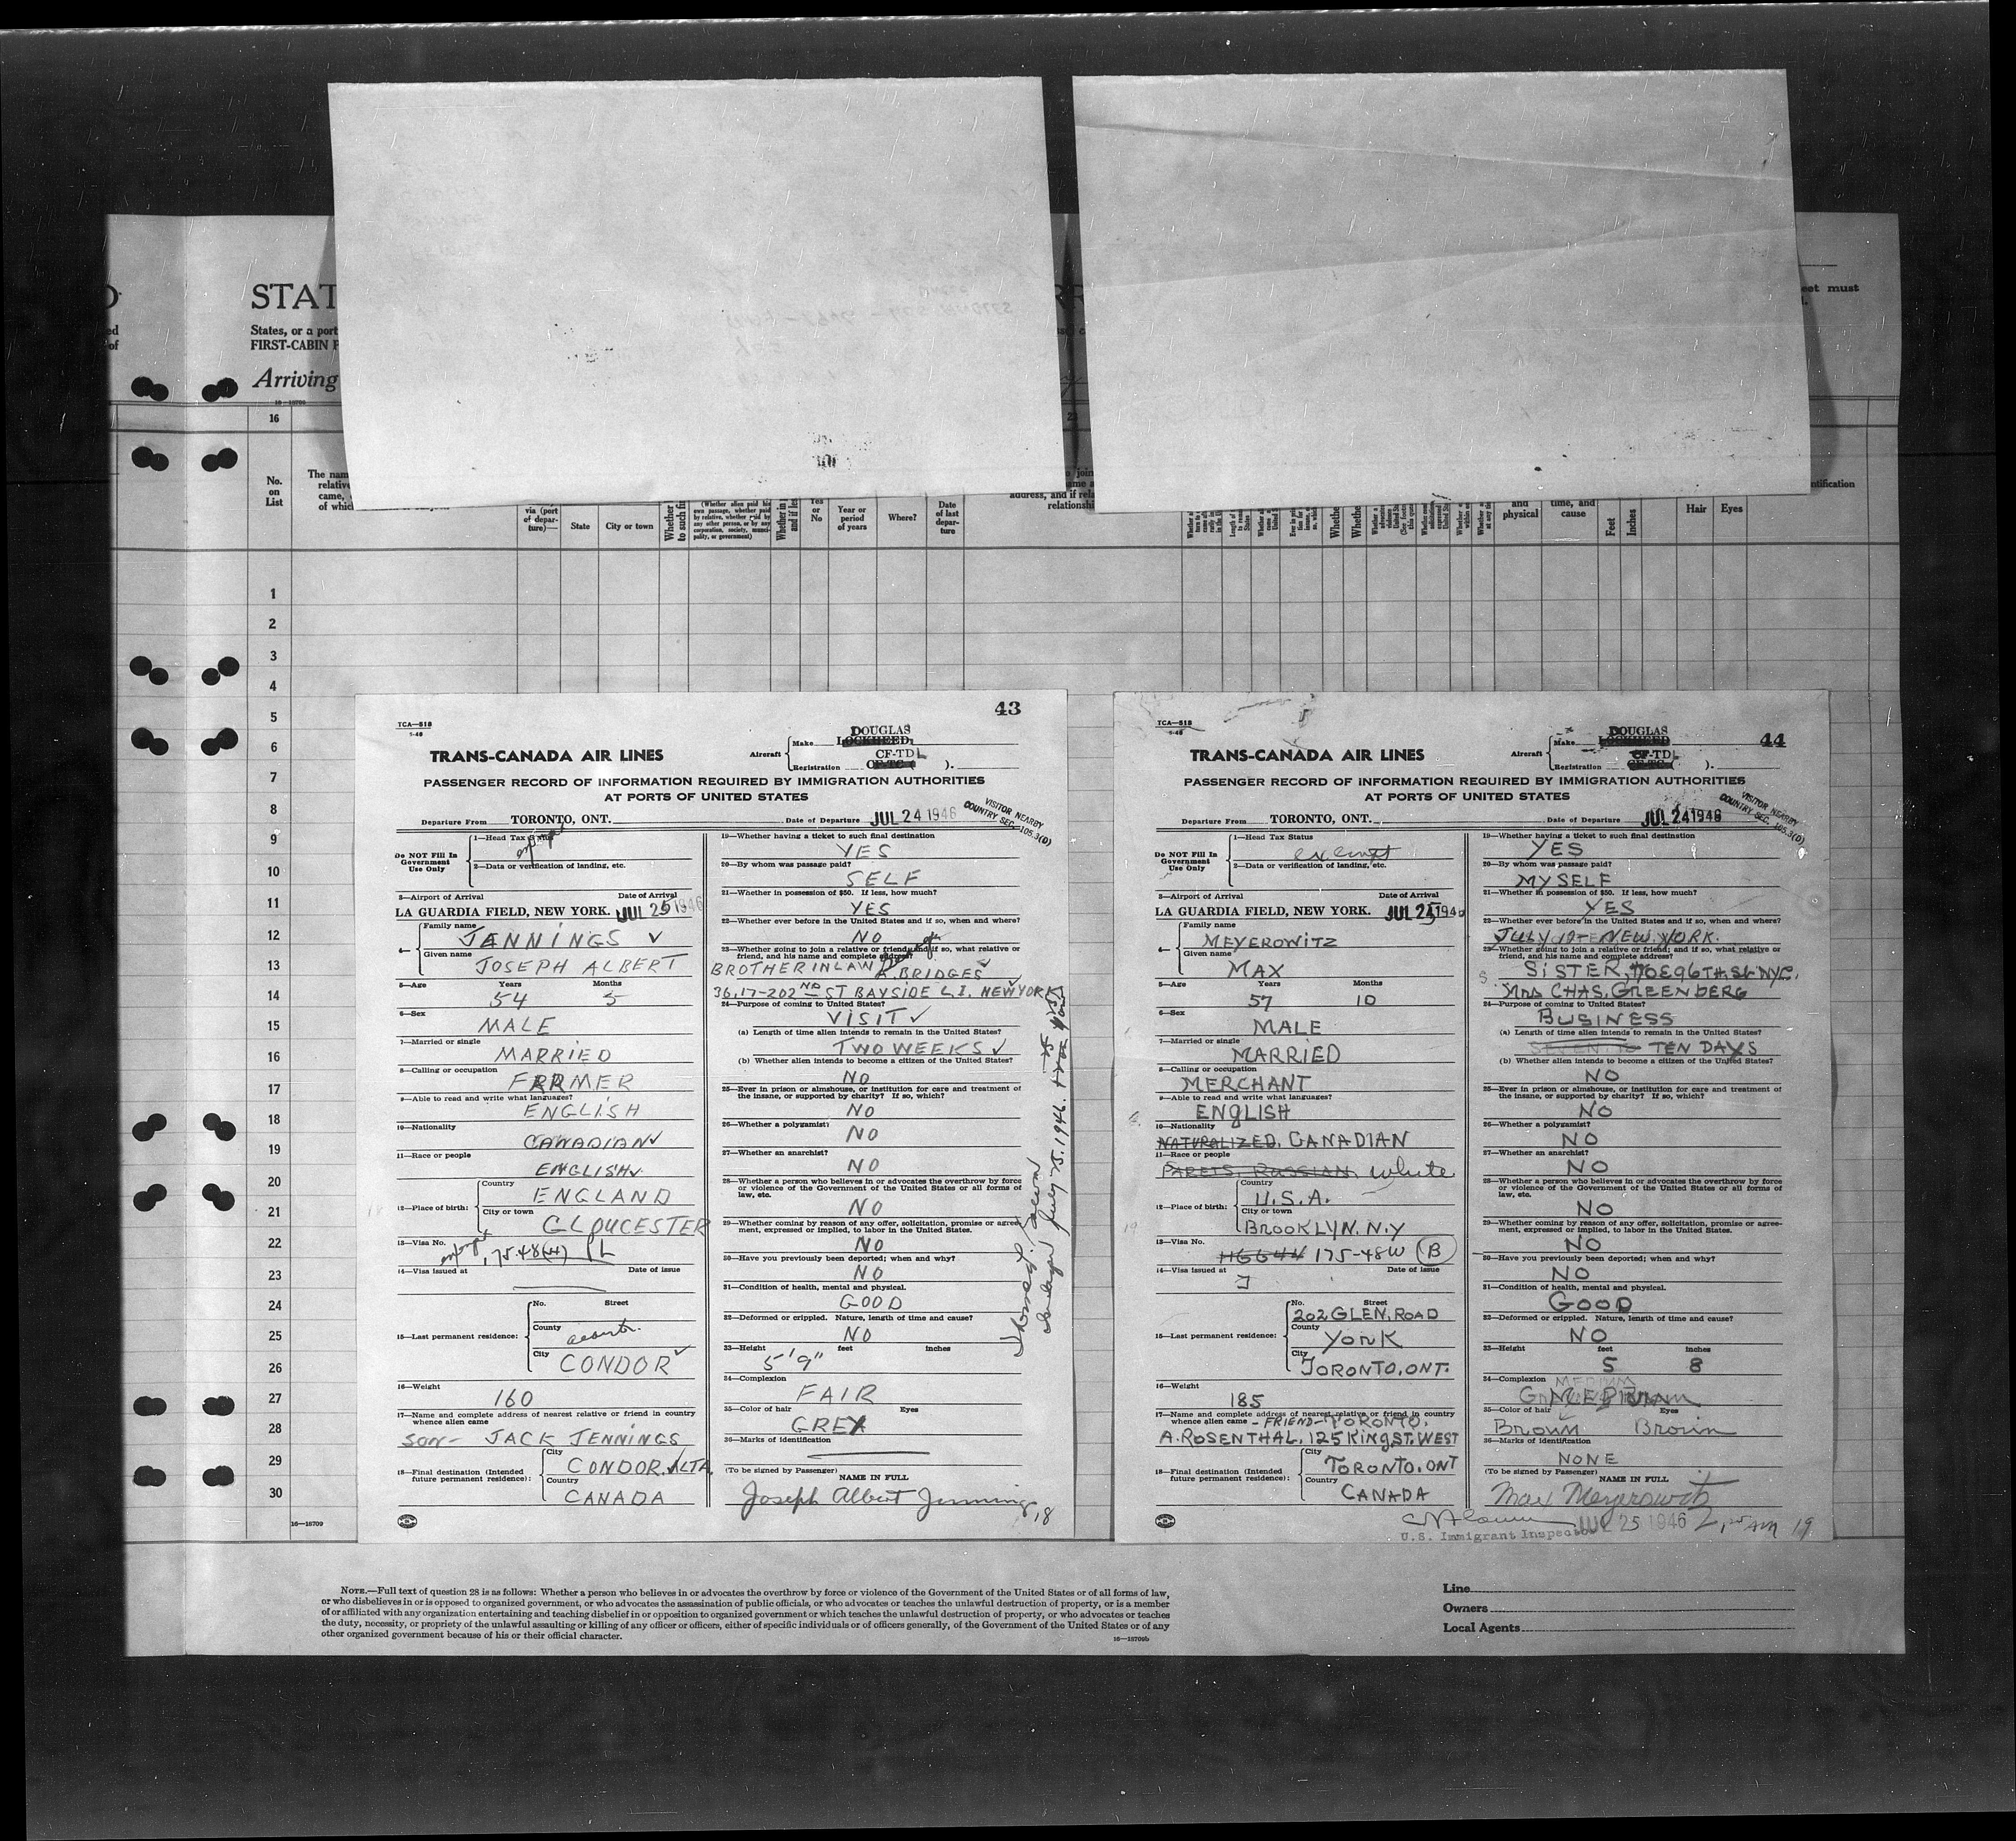 STAT
States, or a port
FIRST-CABIN P
Arriving
eet must
16
No.
on
List
The nam
relativ
came,
of whic
via (port
of depar-
ture)—
State
City or town
Whether
to such fi
(Whether alien paid his
own passage, whether paid
by relative, whether paid by
any other person, or by any
corporation, society, munici-
pality, or government)
Yes
or
No
Year or
period
of years
Where?
Date
of last
depar-
ture
address, and if rela
relationshi
and
physical
time, and
cause
Feet
Inches
Hair
Eyes
ntification
1
2
3
4
5
6
7
8
9
10
11
12
13
14
15
16
17
18
19
20
21
22
23
24
25
26
27
28
29
30
16—18709
43
TCA—518
1-46
TRANS-CANADA AIR LINES
Aircraft
Make DOUGLAS LOCKHEED
Registration CF-TDL CF-TC- ( ).
PASSENGER RECORD OF INFORMATION REQUIRED BY IMMIGRATION AUTHORITIES
AT PORTS OF UNITED STATES
VISITOR NEARBY
COUNTRY SEC. 105.3(0)
Departure From TORONTO, ONT. Date of Departure JUL 24 1946
Do NOT Fill In
Government
Use Only
1—Head Tax Status
2—Data or verification of landing, etc.
3—Airport of Arrival Date of Arrival
LA GUARDIA FIELD, NEW YORK. JUL 25 1946
4— Family name
JENNINGS ✓
Given name
JOSEPH ALBERT
5—Age Years Months
54 5
6—Sex
MALE
7—Married or single
MARRIED
8—Calling or occupation
FARMER
9—Able to read and write what languages?
ENGLISH
10—Nationality
CANADIAN ✓
11—Race or people
ENGLISH ✓
12—Place of birth:
Country
ENGLAND
City or town
GLOUCESTER
13—Visa No.
14—Visa issued at Date of issue
15—Last permanent residence:
No. Street
County
City
CONDOR ✓
16—Weight
160
17—Name and complete address of nearest relative or friend in country
whence alien came
son - JACK JENNINGS
18—Final destination (Intended
future permanent residence):
City
CONDOR. ALTA.
Country
CANADA
19—Whether having a ticket to such final destination
YES
20—By whom was passage paid?
SELF
21—Whether in possession of $50. If less, how much?
YES
22—Whether ever before in the United States and if so, when and where?
NO
23—Whether going to join a relative or friend; and if so, what relative or
friend, and his name and complete address?
BROTHER IN LAW A. BRIDGES ✓
36,17-202ND ST BAYSIDE L.I. NEW YORK
24—Purpose of coming to United States?
VISIT ✓
(a) Length of time alien intends to remain in the United States?
TWO WEEKS ✓
(b) Whether alien intends to become a citizen of the United States?
NO
25—Ever in prison or almshouse, or institution for care and treatment of
the insane, or supported by charity? If so, which?
NO
26—Whether a polygamist?
NO
27—Whether an anarchist?
NO
28—Whether a person who believes in or advocates the overthrow by force
or violence of the Government of the United States or all forms of
law, etc.
NO
29—Whether coming by reason of any offer, solicitation, promise or agree-
ment, expressed or implied, to labor in the United States.
NO
30—Have you previously been deported; when and why?
NO
31—Condition of health, mental and physical.
GOOD
32—Deformed or crippled. Nature, length of time and cause?
NO
33—Height feet inches
5'9"
34—Complexion
FAIR
35—Color of hair Eyes
GREY
36—Marks of identification
(To be signed by Passenger) NAME IN FULL
Joseph Albert Jennings
18
July 25. 1946.
44
TCA—518
1-46
TRANS-CANADA AIR LINES
Aircraft
Make DOUGLAS LOCKHEED
Registration CF-TDL CF-TC- ( ).
PASSENGER RECORD OF INFORMATION REQUIRED BY IMMIGRATION AUTHORITIES
AT PORTS OF UNITED STATES
VISITOR NEARBY
COUNTRY SEC. 105.3(0)
Departure From TORONTO, ONT. Date of Departure JUL 24 1946
Do NOT Fill In
Government
Use Only
1—Head Tax Status
exempt
2—Data or verification of landing, etc.
3—Airport of Arrival Date of Arrival
LA GUARDIA FIELD, NEW YORK. JUL 25 1946
4— Family name
MEYEROWITZ
Given name
MAX
5—Age Years Months
57 10
6—Sex
MALE
7—Married or single
MARRIED
8—Calling or occupation
MERCHANT
9—Able to read and write what languages?
ENGLISH
10—Nationality
NATURALIZED. CANADIAN
11—Race or people
RUSSIAN. White
12—Place of birth:
Country
U.S.A.
City or town
BROOKLYN. N.Y
13—Visa No.
175-48W (B)
14—Visa issued at Date of issue
15—Last permanent residence:
No. Street
202 GLEN. ROAD
County
YORK
City
TORONTO, ONT.
16—Weight
185
17—Name and complete address of nearest relative or friend in country
whence alien came - FRIEND - TORONTO.
A. ROSENTHAL, 125 KING ST. WEST
18—Final destination (Intended
future permanent residence):
City
TORONTO. ONT
Country
CANADA
19—Whether having a ticket to such final destination
YES
20—By whom was passage paid?
MYSELF
21—Whether in possession of $50. If less, how much?
YES
22—Whether ever before in the United States and if so, when and where?
JULY NEW. YORK.
23—Whether going to join a relative or friend; and if so, what relative or
friend, and his name and complete address?
SISTER, E 96TH. St. NYC.
Mrs CHAS. GREENBERG
24—Purpose of coming to United States?
BUSINESS
(a) Length of time alien intends to remain in the United States?
TEN DAYS
(b) Whether alien intends to become a citizen of the United States?
NO
25—Ever in prison or almshouse, or institution for care and treatment of
the insane, or supported by charity? If so, which?
NO
26—Whether a polygamist?
NO
27—Whether an anarchist?
NO
28—Whether a person who believes in or advocates the overthrow by force
or violence of the Government of the United States or all forms of
law, etc.
NO
29—Whether coming by reason of any offer, solicitation, promise or agree-
ment, expressed or implied, to labor in the United States.
NO
30—Have you previously been deported; when and why?
NO
31—Condition of health, mental and physical.
GOOD
32—Deformed or crippled. Nature, length of time and cause?
NO
33—Height feet inches
5 8
34—Complexion
MEDIUM
35—Color of hair Eyes
Brown Brown
36—Marks of identification
NONE
(To be signed by Passenger) NAME IN FULL
Max Meyerowitz
U.S. Immigrant Inspector JUL 25 1946
19
NOTE.—Full text of question 28 is as follows: Whether a person who believes in or advocates the overthrow by force or violence of the Government of the United States or of all forms of law,
or who disbelieves in or is opposed to organized government, or who advocates the assassination of public officials, or who advocates or teaches the unlawful destruction of property, or is a member
of or affiliated with any organization entertaining and teaching disbelief in or opposition to organized government or which teaches the unlawful destruction of property, or who advocates or teaches
the duty, necessity, or propriety of the unlawful assaulting or killing of any officer or officers, either of specific individuals or of officers generally, of the Government of the United States or of any
other organized government because of his or their official character.
16—18709b
Line
Owners
Local Agents